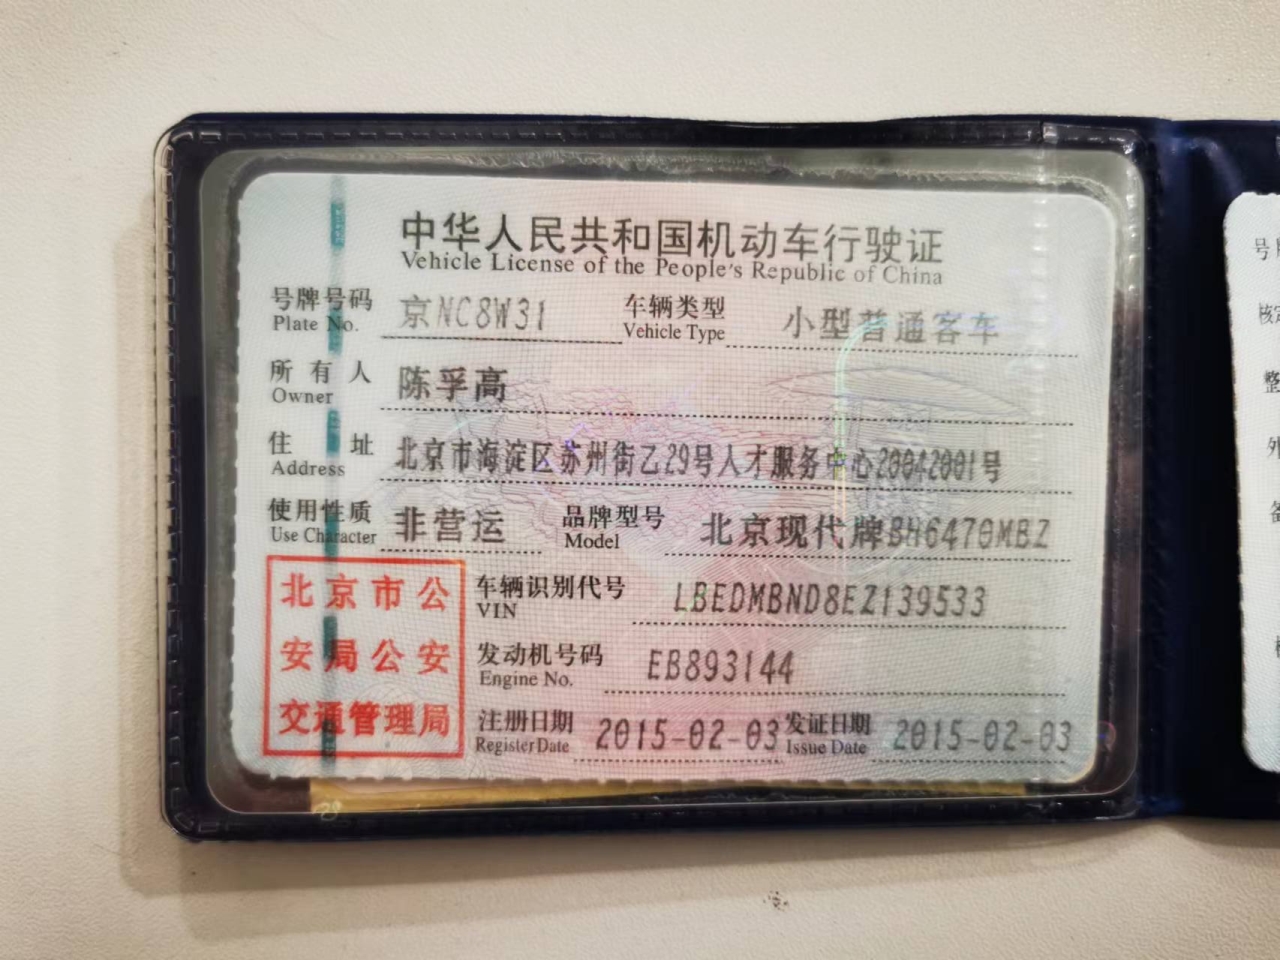 中华人民共和国机动车行驶证
Vehicle License of the People's Republic of China
号牌号码 京NC8W31 车辆类型 小型普通客车
Plate No. Vehicle Type
所有人 陈孚高
Owner
住址 北京市海淀区苏州街乙29号人才服务中心20042001号
Address
使用性质 非营运 品牌型号 北京现代牌BH6470MBZ
Use Character Model
北京市公
安局公安
交通管理局
车辆识别代号 LBEDMBND8EZ139533
VIN
发动机号码 EB893144
Engine No.
注册日期 2015-02-03 发证日期 2015-02-03
Register Date Issue Date
号
核定
整
外